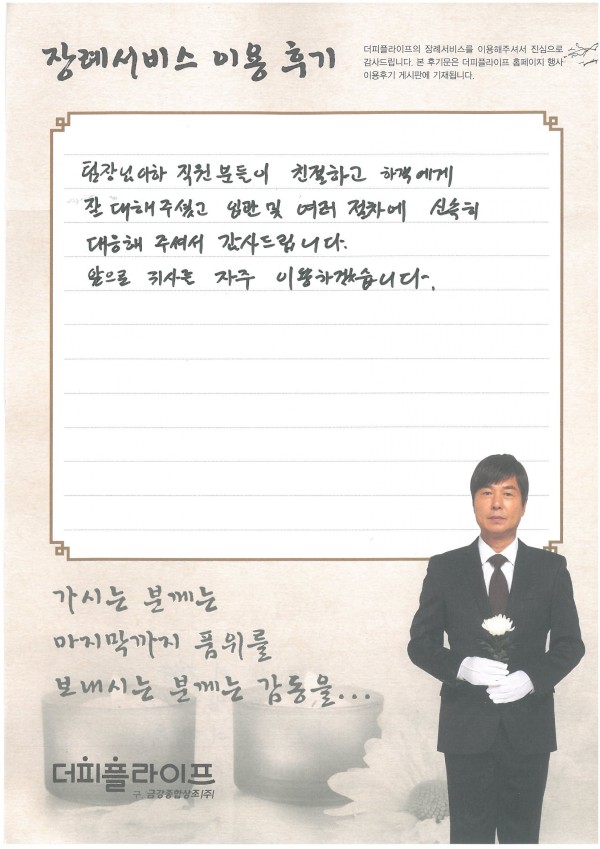 장례서비스 이용 후기
더피플라이프의 장례서비스를 이용해주셔서 진심으로
감사드립니다. 본 후기문은 더피플라이프 홈페이지 행사
이용후기 게시판에 기재됩니다.
팀장님이하 직원분들이 친절하고 하객에게
잘 대해주셨고 입관 및 여러 절차에 신속히
대응해 주셔서 감사드립니다.
앞으로 귀사를 자주 이용하겠습니다.
가시는 분께는
마지막까지 품위를
보내시는 분께는 감동을...
더피플라이프
구. 금강종합상조(주)